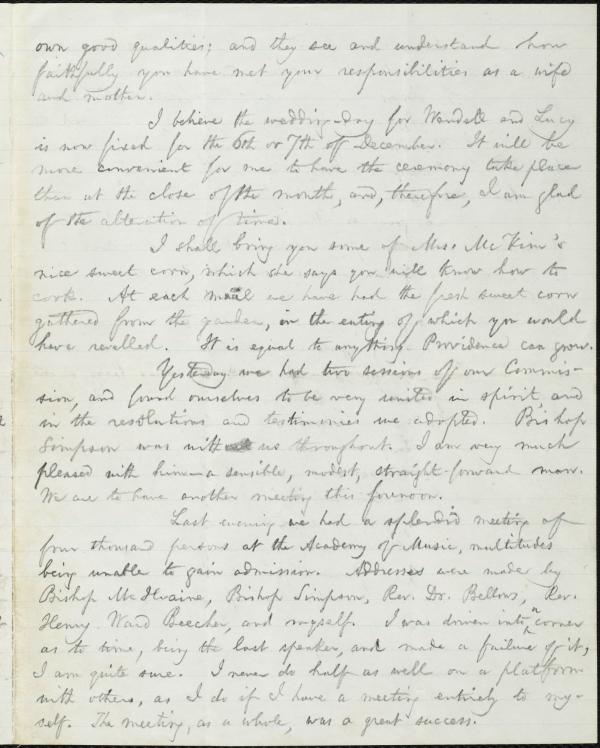 own good qualities; and they see and understand how
faithfully you have met your responsibilities as a wife
and mother.
I believe the wedding-day for Wendell and Lucy
is now fixed for the 6th or 7th of December. It will be
more convenient for me to have the ceremony take place
than at the close of the month, and, therefore, I am glad
of the alteration of time.
I shall bring you some of Mrs. McKim's
nice sweet corn, which she says you will know how to
cook. At each meal we have had the fresh sweet corn
gathered from the garden, in the eating of which you would
have revelled. It is equal to anything Providence can grow.
Yesterday we had two sessions of our Commis-
sion, and found ourselves to be very united in spirit, and
in the resolutions and testimonies we adopted. Bishop
Simpson was with us throughout. I am very much
pleased with him—a sensible, modest, straight-forward man.
We are to have another meeting this forenoon.
Last evening we had a splendid meeting of
four thousand persons at the Academy of Music, multitudes
being unable to gain admission. Addresses were made by
Bishop McIlvaine, Bishop Simpson, Rev. Dr. Bellows, Rev.
Henry Ward Beecher, and myself. I was driven into a corner
as to time, being the last speaker, and made a failure of it,
I am quite sure. I never do half as well on a platform
with others, as I do if I have a meeting entirely to my-
self. The meeting, as a whole, was a great success.